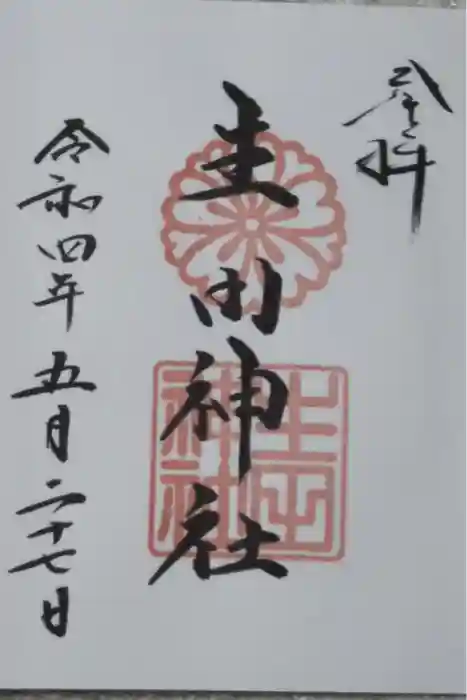 奉拝
生田神社
令和四年五月二十七日